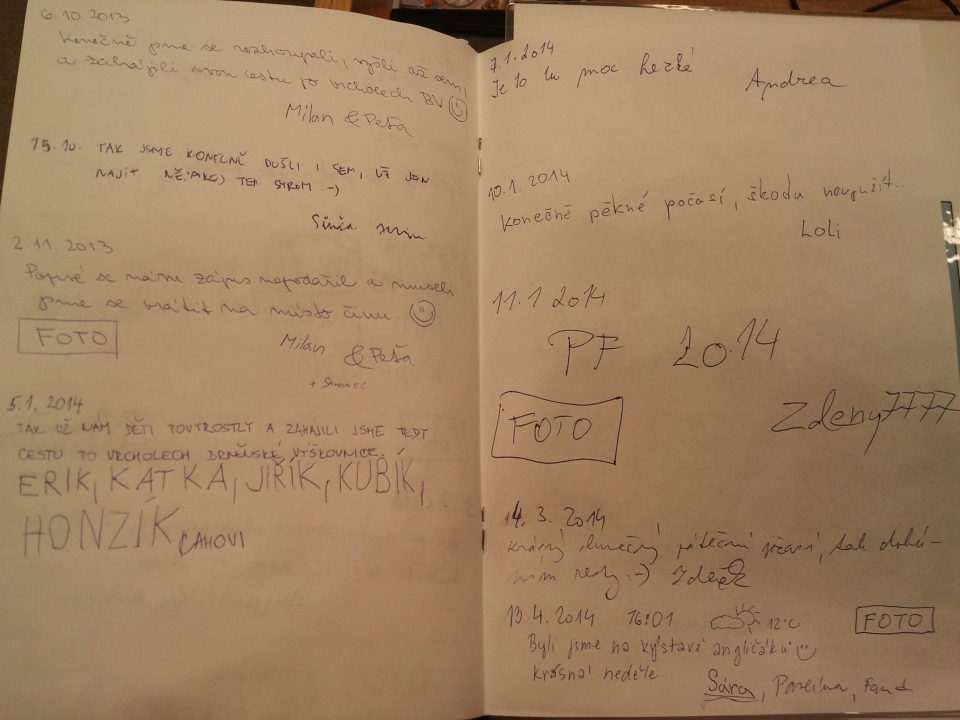 6.10.2013
Konečně jsme se rozhoupali, vyšli až sem!
a zahájili svou cestu po vrcholech BV
Milan & Peťa
15.10. TAK JSME KONEČNĚ DOŠLI I SEM, UŽ JEN
NAJÍT NĚJAKEJ TEN STROM :-)
2.11.2013
Poprvé se nám zápis nepodařil a museli
jsme se vrátit na místo činu.
FOTO
Milan & Peťa
5.1.2014
TAK UŽ NÁM DĚTI POVYROSTLY A ZAHÁJILI JSME TEDY
CESTU PO VRCHOLECH BRNĚNSKÉ VÝŠKOVNICE.
ERIK, KATKA, JIŘÍK, KUBÍK,
HONZÍK CAHOVI
7.1.2014
Je to tu moc hezké
Andrea
10.1.2014
Konečně pěkné počasí, škoda nevyužít..
Loli
11.1 2014
PF 2014
Zdeny7777
FOTO
14.3.2014
Krásný slunečný páteční počasí, tak doháním
resty :-) Zdeněk
13.4.2014 16:01 12°C FOTO
Byli jsme na výstavě angličáků
krásná neděle
Sára, Pavlína,